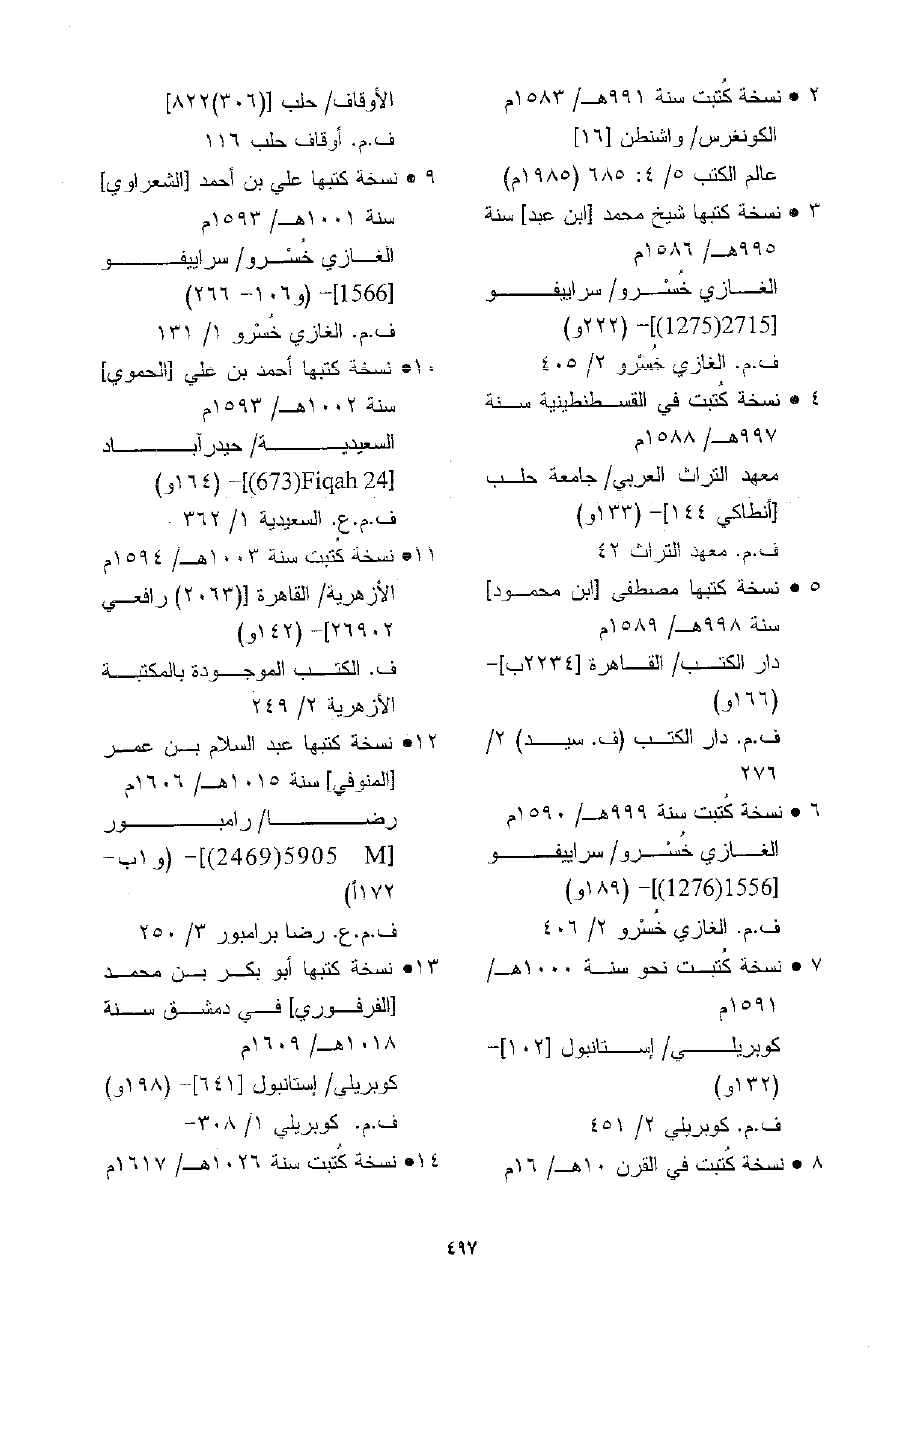 ٢ • نسخة كُتبت سنة ٩٩١هـ/ ١٥٨٣م
الكونغرس/ واشنطن [١٦]
عالم الكتب ٥/ ٤: ٦٨٥ (١٩٨٥م)
٣ • نسخة كتبها شيخ محمد [ابن عبد] سنة
٩٩٥هـ/ ١٥٨٦م
الغازي خُسْرو/ سراييفو
[2715(1275)]- (٢٢٢و)
ف.م. الغازي خُسْرو ٢/ ٤٠٥
٤ • نسخة كُتبت في القسطنطينية سنة
٩٩٧هـ/ ١٥٨٨م
معهد التراث العربي/ جامعة حلب
[أنطاكي ١٤٤]- (١٣٣و)
ف.م. معهد التراث ٤٢
٥ • نسخة كتبها مصطفى [ابن محمود]
سنة ٩٩٨هـ/ ١٥٨٩م
دار الكتب/ القاهرة [٢٢٣٤ب]-
(١٦٦و)
ف.م. دار الكتب (ف. سيد) ٢/
٢٧٦
٦ • نسخة كُتبت سنة ٩٩٩هـ/ ١٥٩٠م
الغازي خُسْرو/ سراييفو
[1556(1276)]- (١٨٩و)
ف.م. الغازي خُسْرو ٢/ ٤٠٦
٧ • نسخة كُتبت نحو سنة ١٠٠٠هـ/
١٥٩١م
كوبريلي/ إستانبول [١٠٢]-
(١٣٢و)
ف.م. كوبريلي ٢/ ٤٥١
٨ • نسخة كُتبت في القرن ١٠هـ/ ١٦م
الأوقاف/ حلب [(٣٠٦)٨٢٢]
ف.م. أوقاف حلب ١١٦
٩ • نسخة كتبها علي بن أحمد [الشعراوي]
سنة ١٠٠١هـ/ ١٥٩٣م
الغازي خُسْرو/ سراييفو
[1566]- (و١٠٦- ٢٦٦)
ف.م. الغازي خُسْرو ١/ ١٣١
١٠• نسخة كتبها أحمد بن علي [الحموي]
سنة ١٠٠٢هـ/ ١٥٩٣م
السعيدية/ حيدرآباد
[Fiqah 24(673)]- (١٦٤و)
ف.م.ع. السعيدية ١/ ٣٦٢
١١• نسخة كُتبت سنة ١٠٠٣هـ/ ١٥٩٤م
الأزهرية/ القاهرة [(٢٠٦٣) رافعي
٢٦٩٠٢]- (١٤٢و)
ف. الكتب الموجودة بالمكتبة
الأزهرية ٢/ ٢٤٩
١٢• نسخة كتبها عبد السلام بن عمر
[المنوفي] سنة ١٠١٥هـ/ ١٦٠٦م
رضا/ رامبور
[M 5905(2469)]- (و١ب-
١٧٢أ)
ف.م.ع. رضا برامبور ٣/ ٢٥٠
١٣• نسخة كتبها أبو بكر بن محمد
[الفرفوري] في دمشق سنة
١٠١٨هـ/ ١٦٠٩م
كوبريلي/ إستانبول [٦٤١]- (١٩٨و)
ف.م. كوبريلي ١/ ٣٠٨-
١٤• نسخة كُتبت سنة ١٠٢٦هـ/ ١٦١٧م
٤٩٧